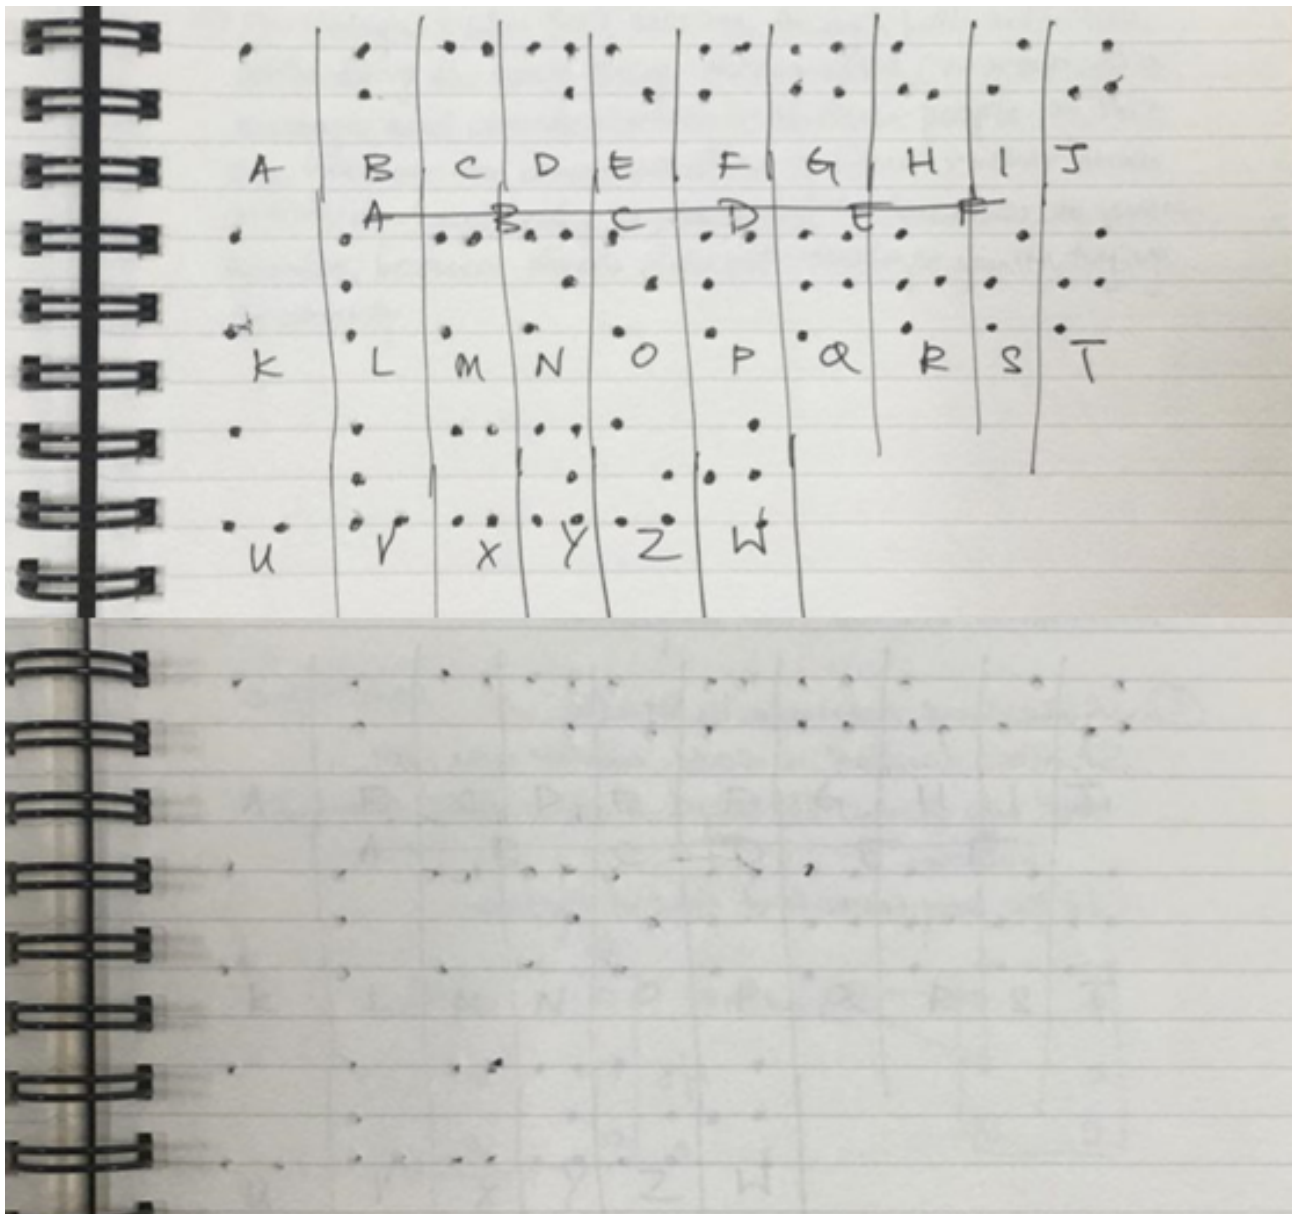 A B C D E F G H I J
A B C D E F
K L M N O P Q R S T
U V X Y Z W